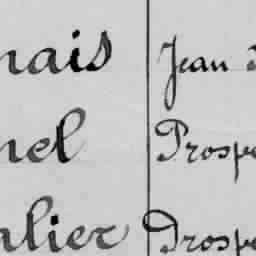 nais Jean
nel Prospe
alier Prospe